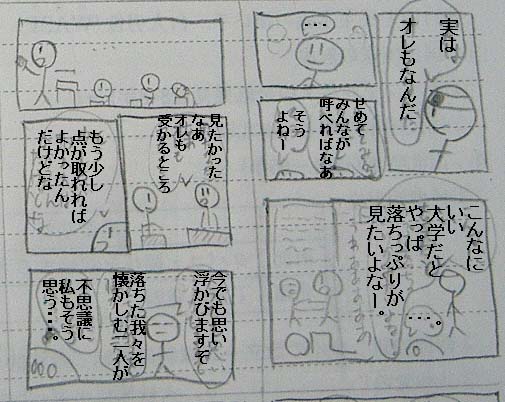 実は
オレもなんだ
・・・
せめて
みんなが
呼べればなあ
そう
よねー
こんなに
いい
大学だと
やっぱ
落ちっぷりが
見たいよなー。
・・・。
見たかった
なあ
オレも
受かるところ
もう少し
点が取れれば
よかったん
だけどな
今でも思い
浮かびますぞ
落ちた我々を
懐かしむ二人が
不思議に
私もそう
思う・・・。